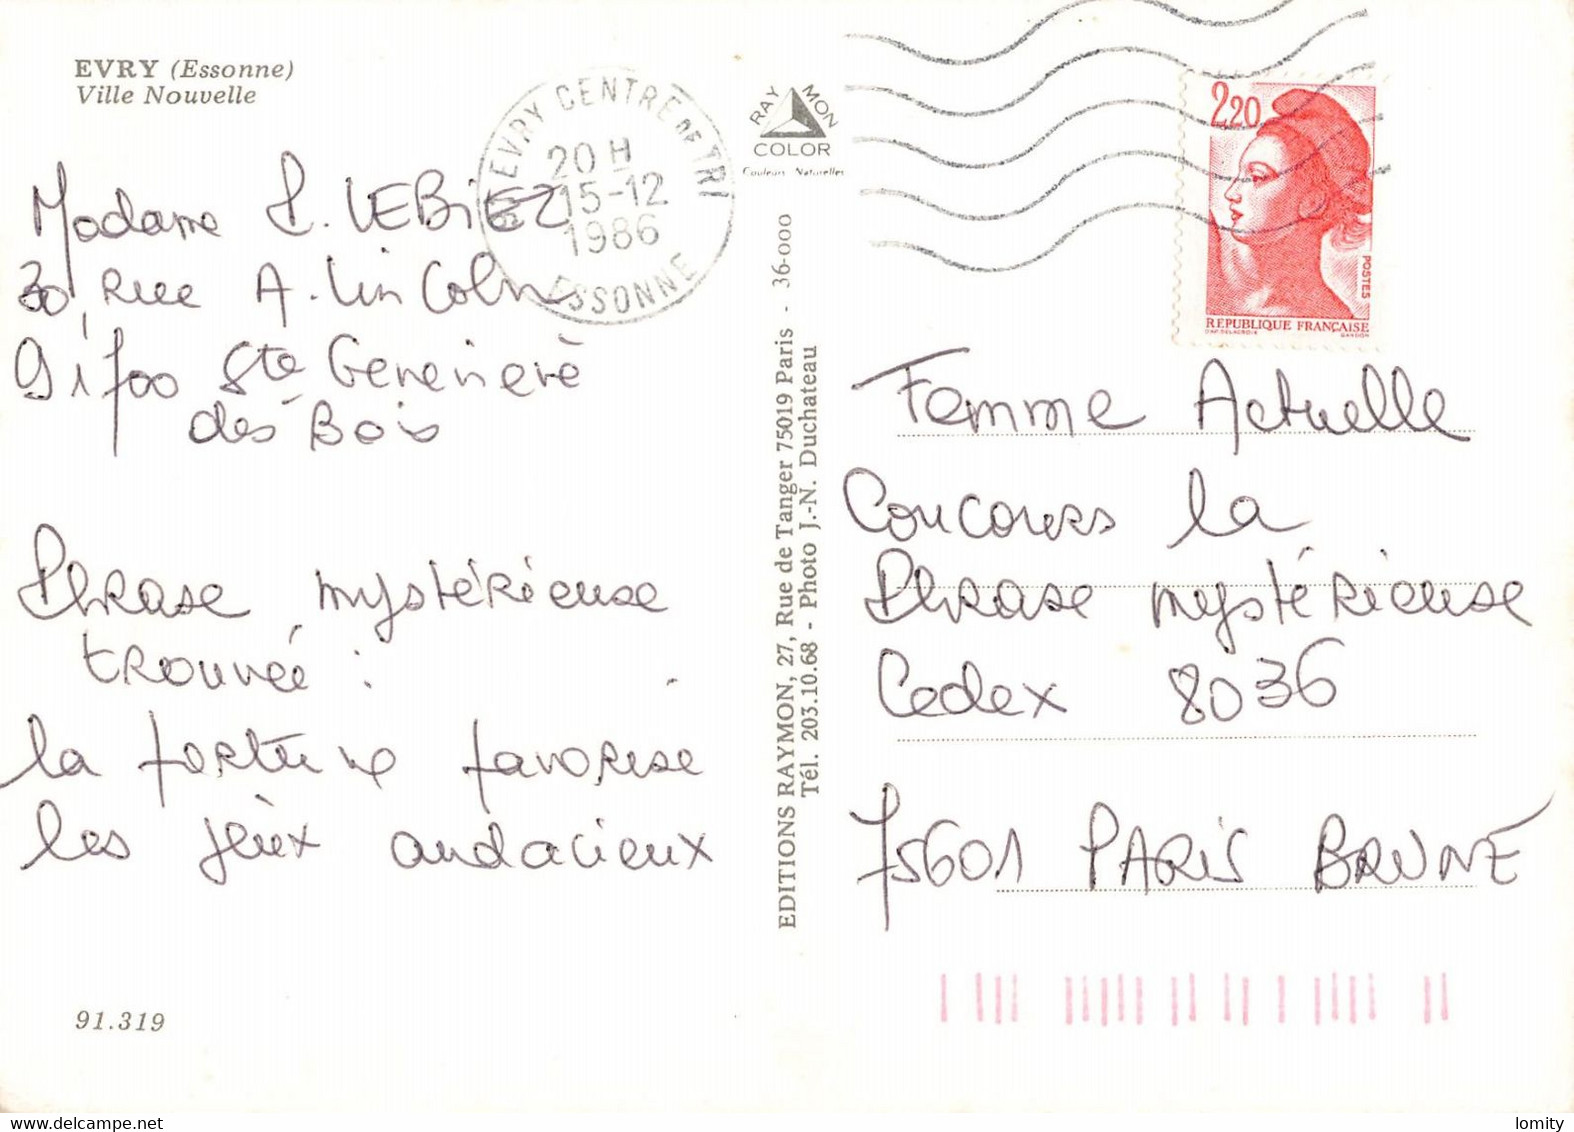 EVRY (Essonne)
Ville Nouvelle
EVRY CENTRE DE TRI
20 H
15-12
1986
ESSONNE
Madame L. LEBIEZ
30, Rue A. Lincoln
91700 Ste Genevieve
des Bois
Phrase mystérieuse
trouvée :
la fortune favorise
les jeux audacieux
91.319
RAYMON
COLOR
Couleurs Naturelles
EDITIONS RAYMON, 27, Rue de Tanger 75019 Paris - 36-000
Tél. 203.10.68 - Photo J.-N. Duchateau
2,20
POSTES
REPUBLIQUE FRANÇAISE
D'AP. DELACROIX GANDON
Femme Actuelle
Concours la
Phrase mystérieuse
Cedex 8036
75601 PARIS BRUNE
Delcampe.net
lomity